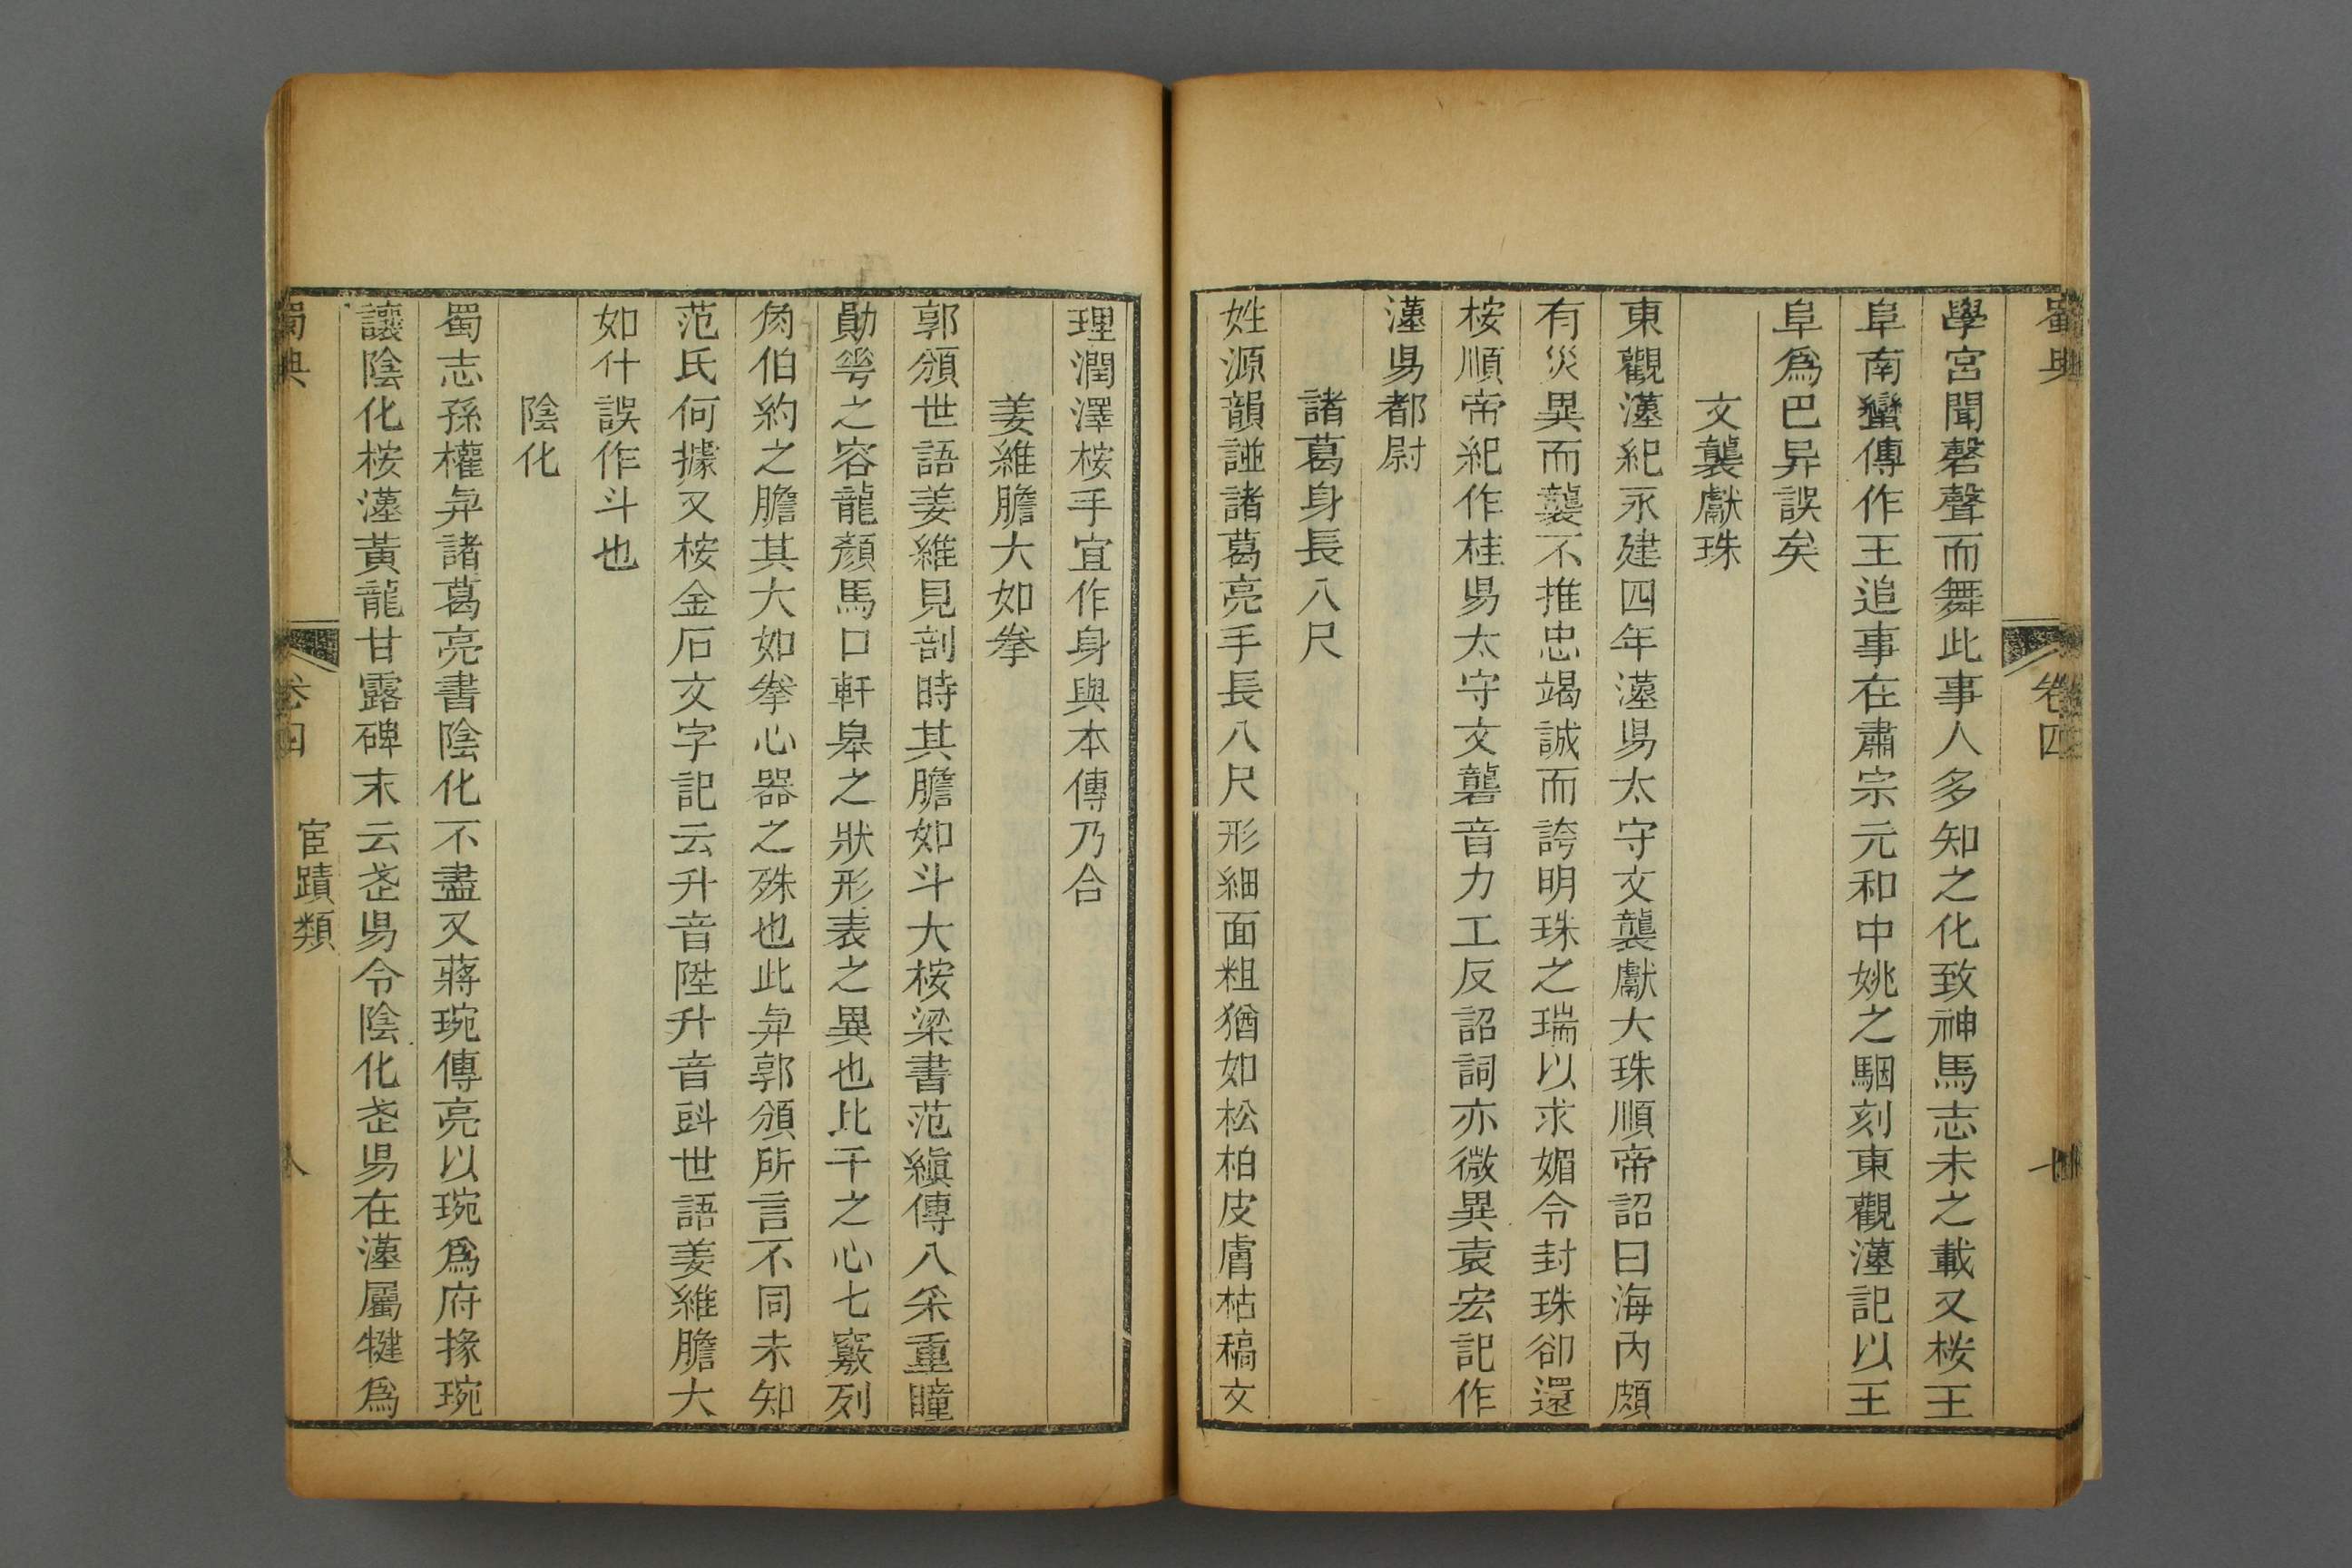 蜀典 卷四
學宮聞磬聲而舞此事人多知之化致神馬志未之載又桉王
阜南蠻傳作王追事在肅宗元和中姚之駰刻東觀漢記以王
阜為巴异誤矣
文襲獻珠
東觀漢紀永建四年漢昜太守文襲獻大珠順帝詔曰海內頗
有災異而襲不推忠竭誠而誇明珠之瑞以求媚令封珠卻還
桉順帝紀作桂昜太守文礱音力工反詔詞亦微異袁宏記作
漢昜都尉
諸葛身長八尺
姓源韻譜諸葛亮手長八尺形細面粗猶如松柏皮膚枯槁文
理潤澤桉手宜作身與本傳乃合
姜維膽大如拳
郭頒世語姜維見剖時其膽如斗大桉梁書范縝傳八采重瞳
勛華之容龍顏馬口軒皋之狀形表之異也比干之心七竅列
角伯約之膽其大如拳心器之殊也此與郭頒所言不同未知
范氏何據又桉金石文字記云升音陞升音斗世語姜維膽大
如什誤作斗也
陰化
蜀志孫權與諸葛亮書陰化不盡又蔣琬傳亮以琬為府掾琬
讓陰化桉漢黃龍甘露碑末云武昜令陰化武昜在漢屬犍為
蜀典 卷四 宦蹟類 八